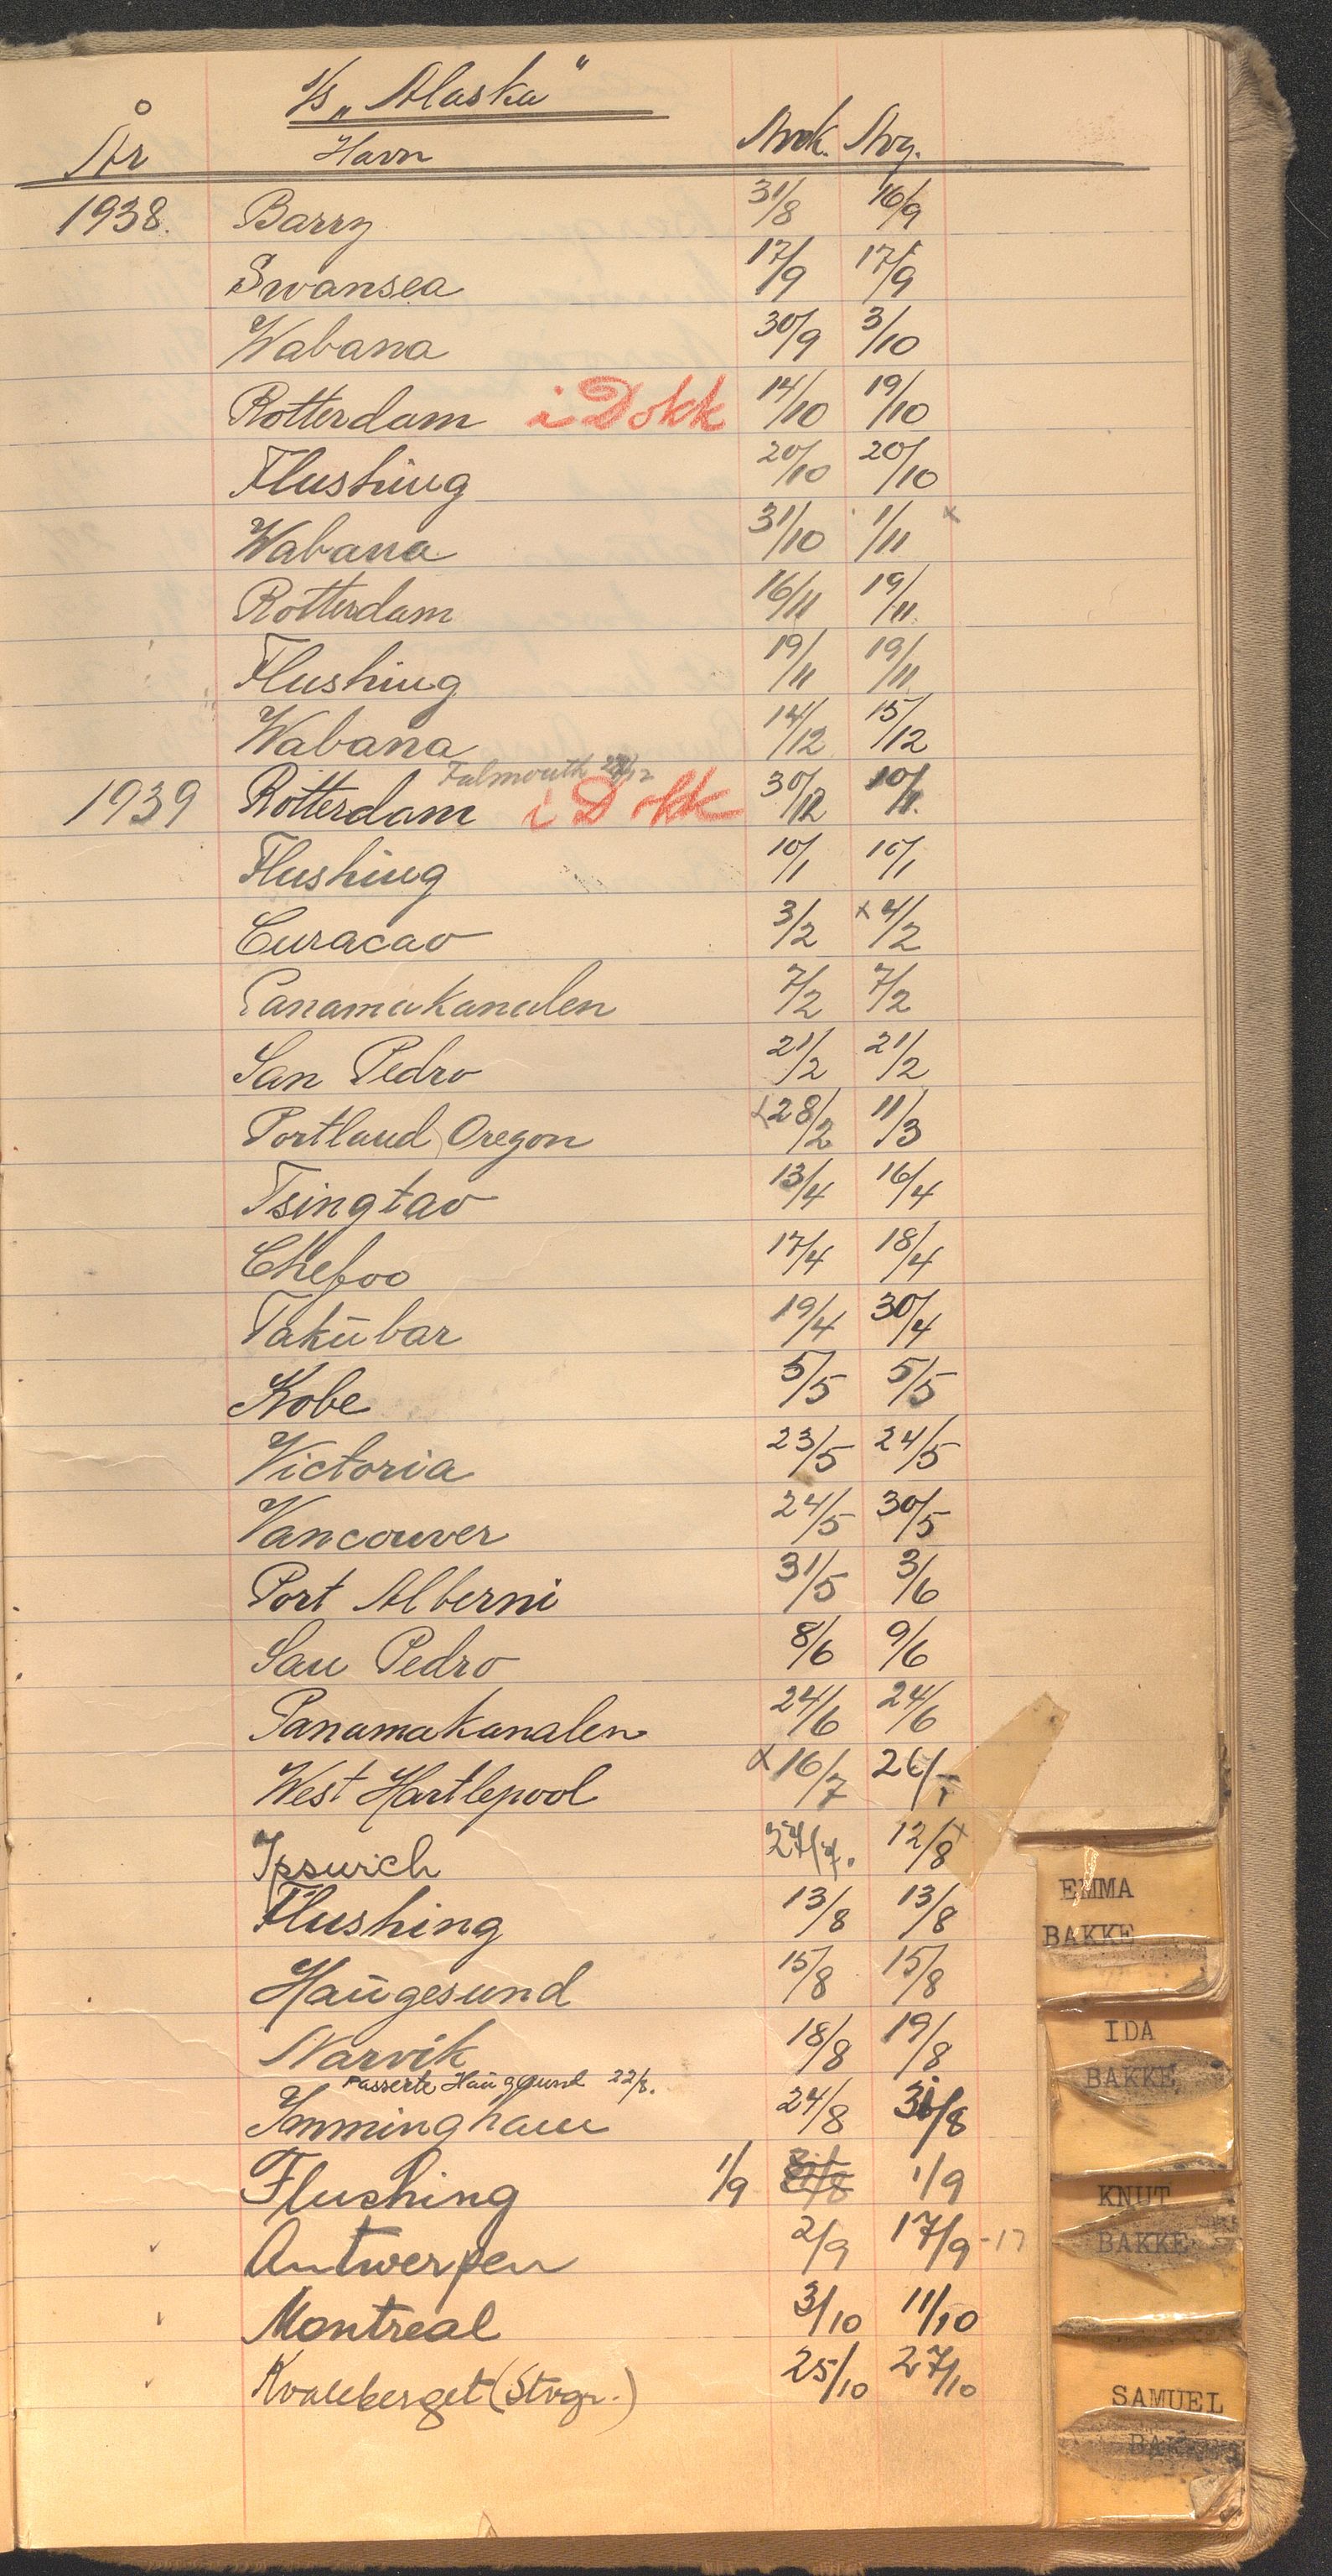 S/S „Alaska"
År Havn Ank. Avg.
1938. Barry 31/8 16/9
Swansea 17/9 17/9
Wabana 30/9 3/10
Rotterdam i Dokk 14/10 19/10
Flushing 20/10 20/10
Wabana 31/10 1/11 x
Rotterdam 16/11 19/11
Flushing 19/11 19/11
Wabana 14/12 15/12
Falmouth
1939 Rotterdam i Dokk 30/12 10/1
Flushing 10/1 10/1
Curacao 3/2 x 4/2
Panamakanalen 7/2 7/2
San Pedro 21/2 21/2
Portland, Oregon x 28/2 11/3
Tsingtao 13/4 16/4
Chefoo 17/4 18/4
Takŭbar 19/4 30/4
Kobe 5/5 5/5
Victoria 23/5 24/5
Vancouver 24/5 30/5
Port Alberni 31/5 3/6
San Pedro 8/6 9/6
Panamakanalen 24/6 24/6
West Hartlepool x 16/7
Ipswich 27/7. 12/8 x
Flushing 13/8 13/8
Haŭgesund 15/8 15/8
Narvik 18/8 19/8
passerte Haŭgesund 22/8.
Immingham 24/8 31/8
Flushing 1/9 1/9
Antwerpen 2/9 17/9 -17
Montreal 3/10 11/10
Kvaleberget (Stvgr.) 25/10 27/10
EMMA
BAKKE
IDA
BAKKE
KNUT
BAKKE
SAMUEL
BAKKE